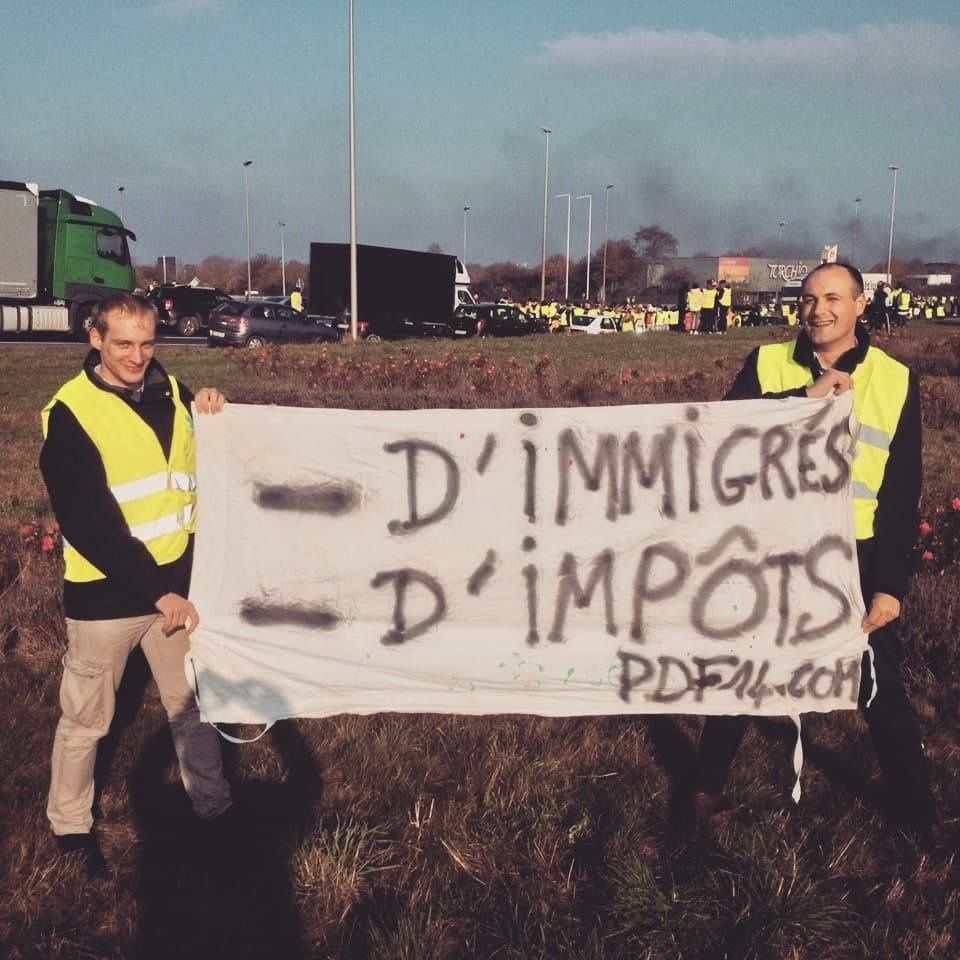 - D'iMMiGRÉS
- D'iMPÔTS
PDF14.COM
TORCHIO